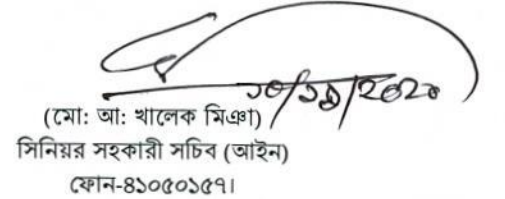 ১০/১১/২০২০
(মো: আ: খালেক মিঞা)
সিনিয়র সহকারী সচিব (আইন)
ফোন-৪১০৫০১৫৭।